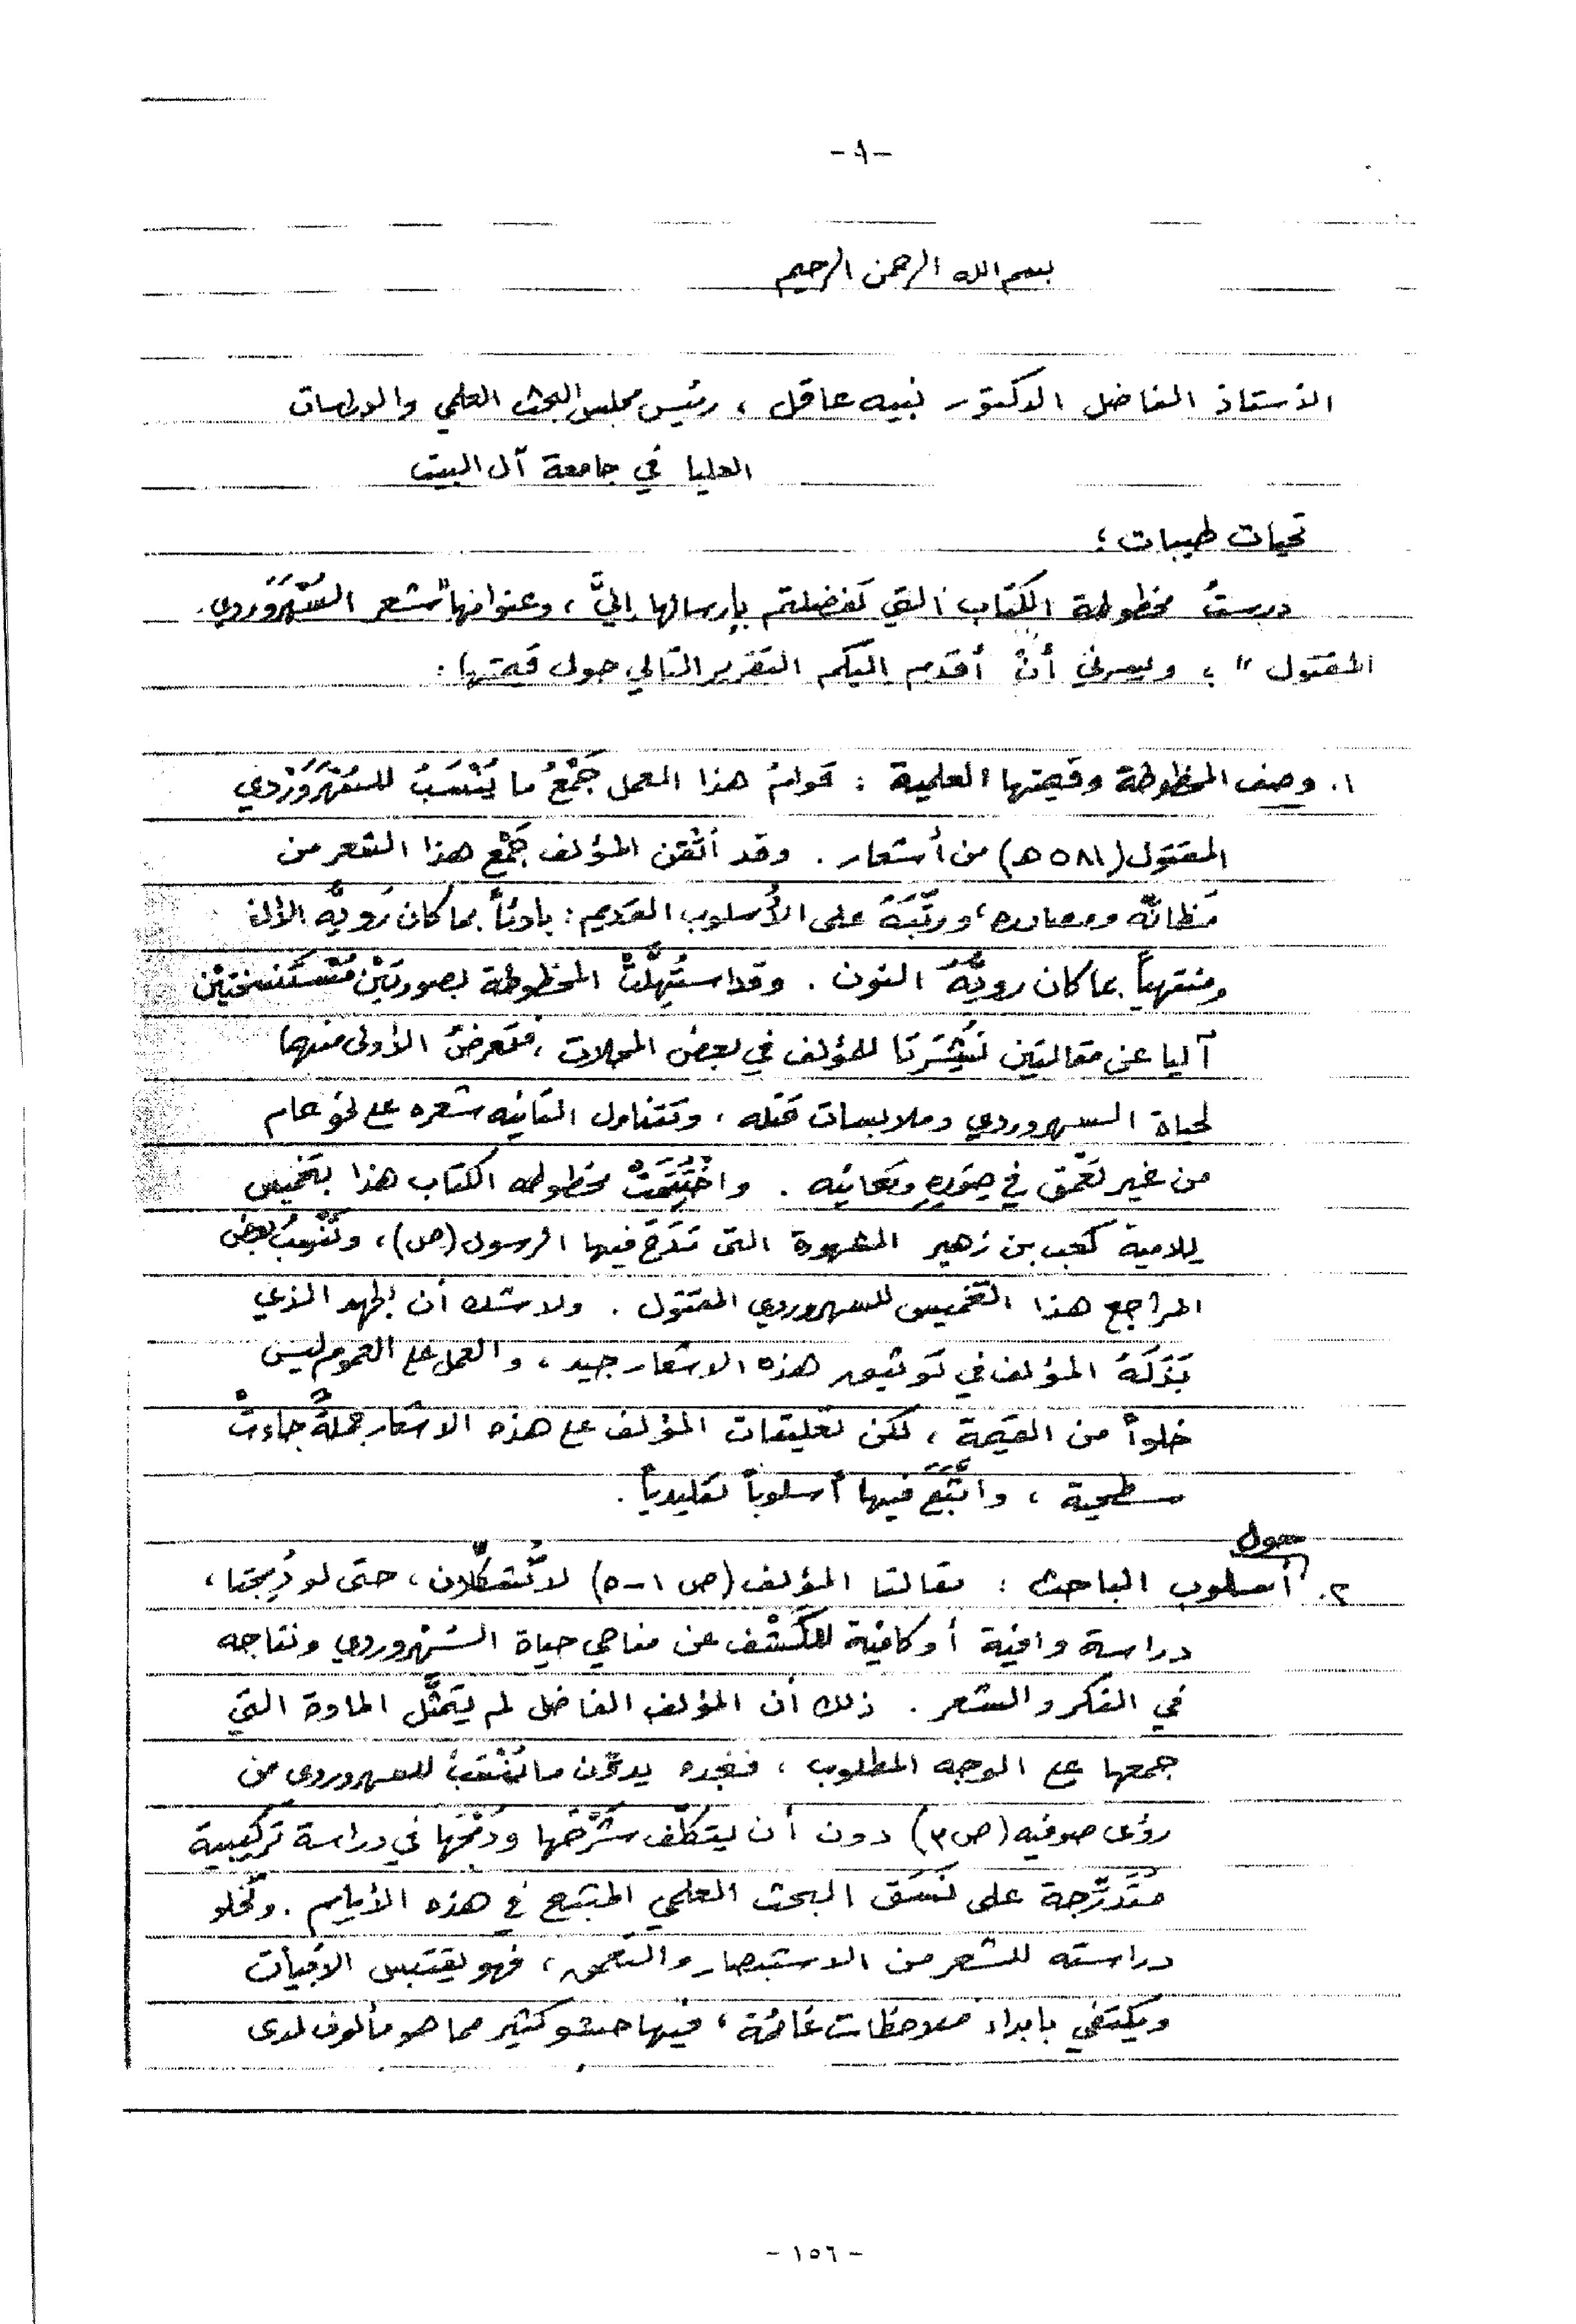 -١-
بسم الله الرحمن الرحيم
الأستاذ الفاضل الدكتور نبيه عاقل ، رئيس مجلس البحث العلمي والدراسات
العليا في جامعة آل البيت
تحيات طيبات ؛
درستُ مخطوطة الكتاب التي تفضلتم بإرسالها إليَّ ، وعنوانها "شعر السُّهْرَوَردي
المقتول" ؛ ويسرني أنْ أقدم اليكم التقرير التالي حول قيمتها :
١. وصف المخطوطة وقيمتها العلمية : قوامُ هذا العمل جَمْعُ ما يُنْسَبُ للسُّهْرَوَرْدي
المقتول (٥٨١ ه) من أشعار . وقد أتْقن المؤلف جَمْع هذا الشعر من
مَظانّه ومصادره، ورتَّبَهُ على الأُسلوب القديم : بادئاً بما كان رَويُّه الألف
ومنتهياً بما كان رويُّهُ النون . وقد استُهِلَّتْ المخطوطة بصورتَيْن مُسْتَنسختَيْن
آليا عن مقالتين نُشِرَتا للمؤلف في بعض المجلات ، فتَعرضُ الأولى منهما
لحياة السهروردي وملابسات قَتْله ، وتتناول الثانيه شعره على نحو عام
من غير تعَمّق في صُوَرِهِ ومَعانيه . واخْتُتِمَتْ مخطوطه الكتاب هذا بتخميس
للامية كعب بن زهير المشهورة التى مَدَحَ فيها الرسول (ص) ، وتَنْسِبُ بعض
المراجع هذا التخميس للسهروردي المقتول . ولا شك أن الجهد الذي
بَذَلَهُ المؤلف في توثيق هذه الاشعار جيد ، والعمل على العموم ليس
خلواً من القيمة ، لكن تعليقات المؤلف على هذه الاشعار جملةً جاءتْ
سطحية ، واتَّبَعَ فيها أسلوباً تقليدياً .
حول
٢. أسلوب الباحث : مقالتا المؤلف (ص ١-٥) لا تُشكِّلان ، حتى لو دُمِجتا ،
دراسة وافية أو كافية للكَشْف عن مناحي حياة السُّهروردي ونتاجه
في الفكر والشعر . ذلك أن المؤلف الفاضل لم يتَمثَّل المادة التي
جمعها على الوجه المطلوب ، فنجده يدوّن ما يُنْسَبُ للسهروردي من
رؤى صوفيه (ص ٣) دون أن يتكلّف شَرْحَها ودَمْجَها في دراسة تركيبية
مُتَدَرّجة على نَسَق البحث العلمي المتبع في هذه الأيام . وتَخلو
دراسته للشعر من الاستبصار والتعمق ، فهو يقتبس الأبيات
ويكتفي بابداء ملاحظات عامّة ، فيها حشو كثير مما هو مألوف لدى
- ١٥٦ -